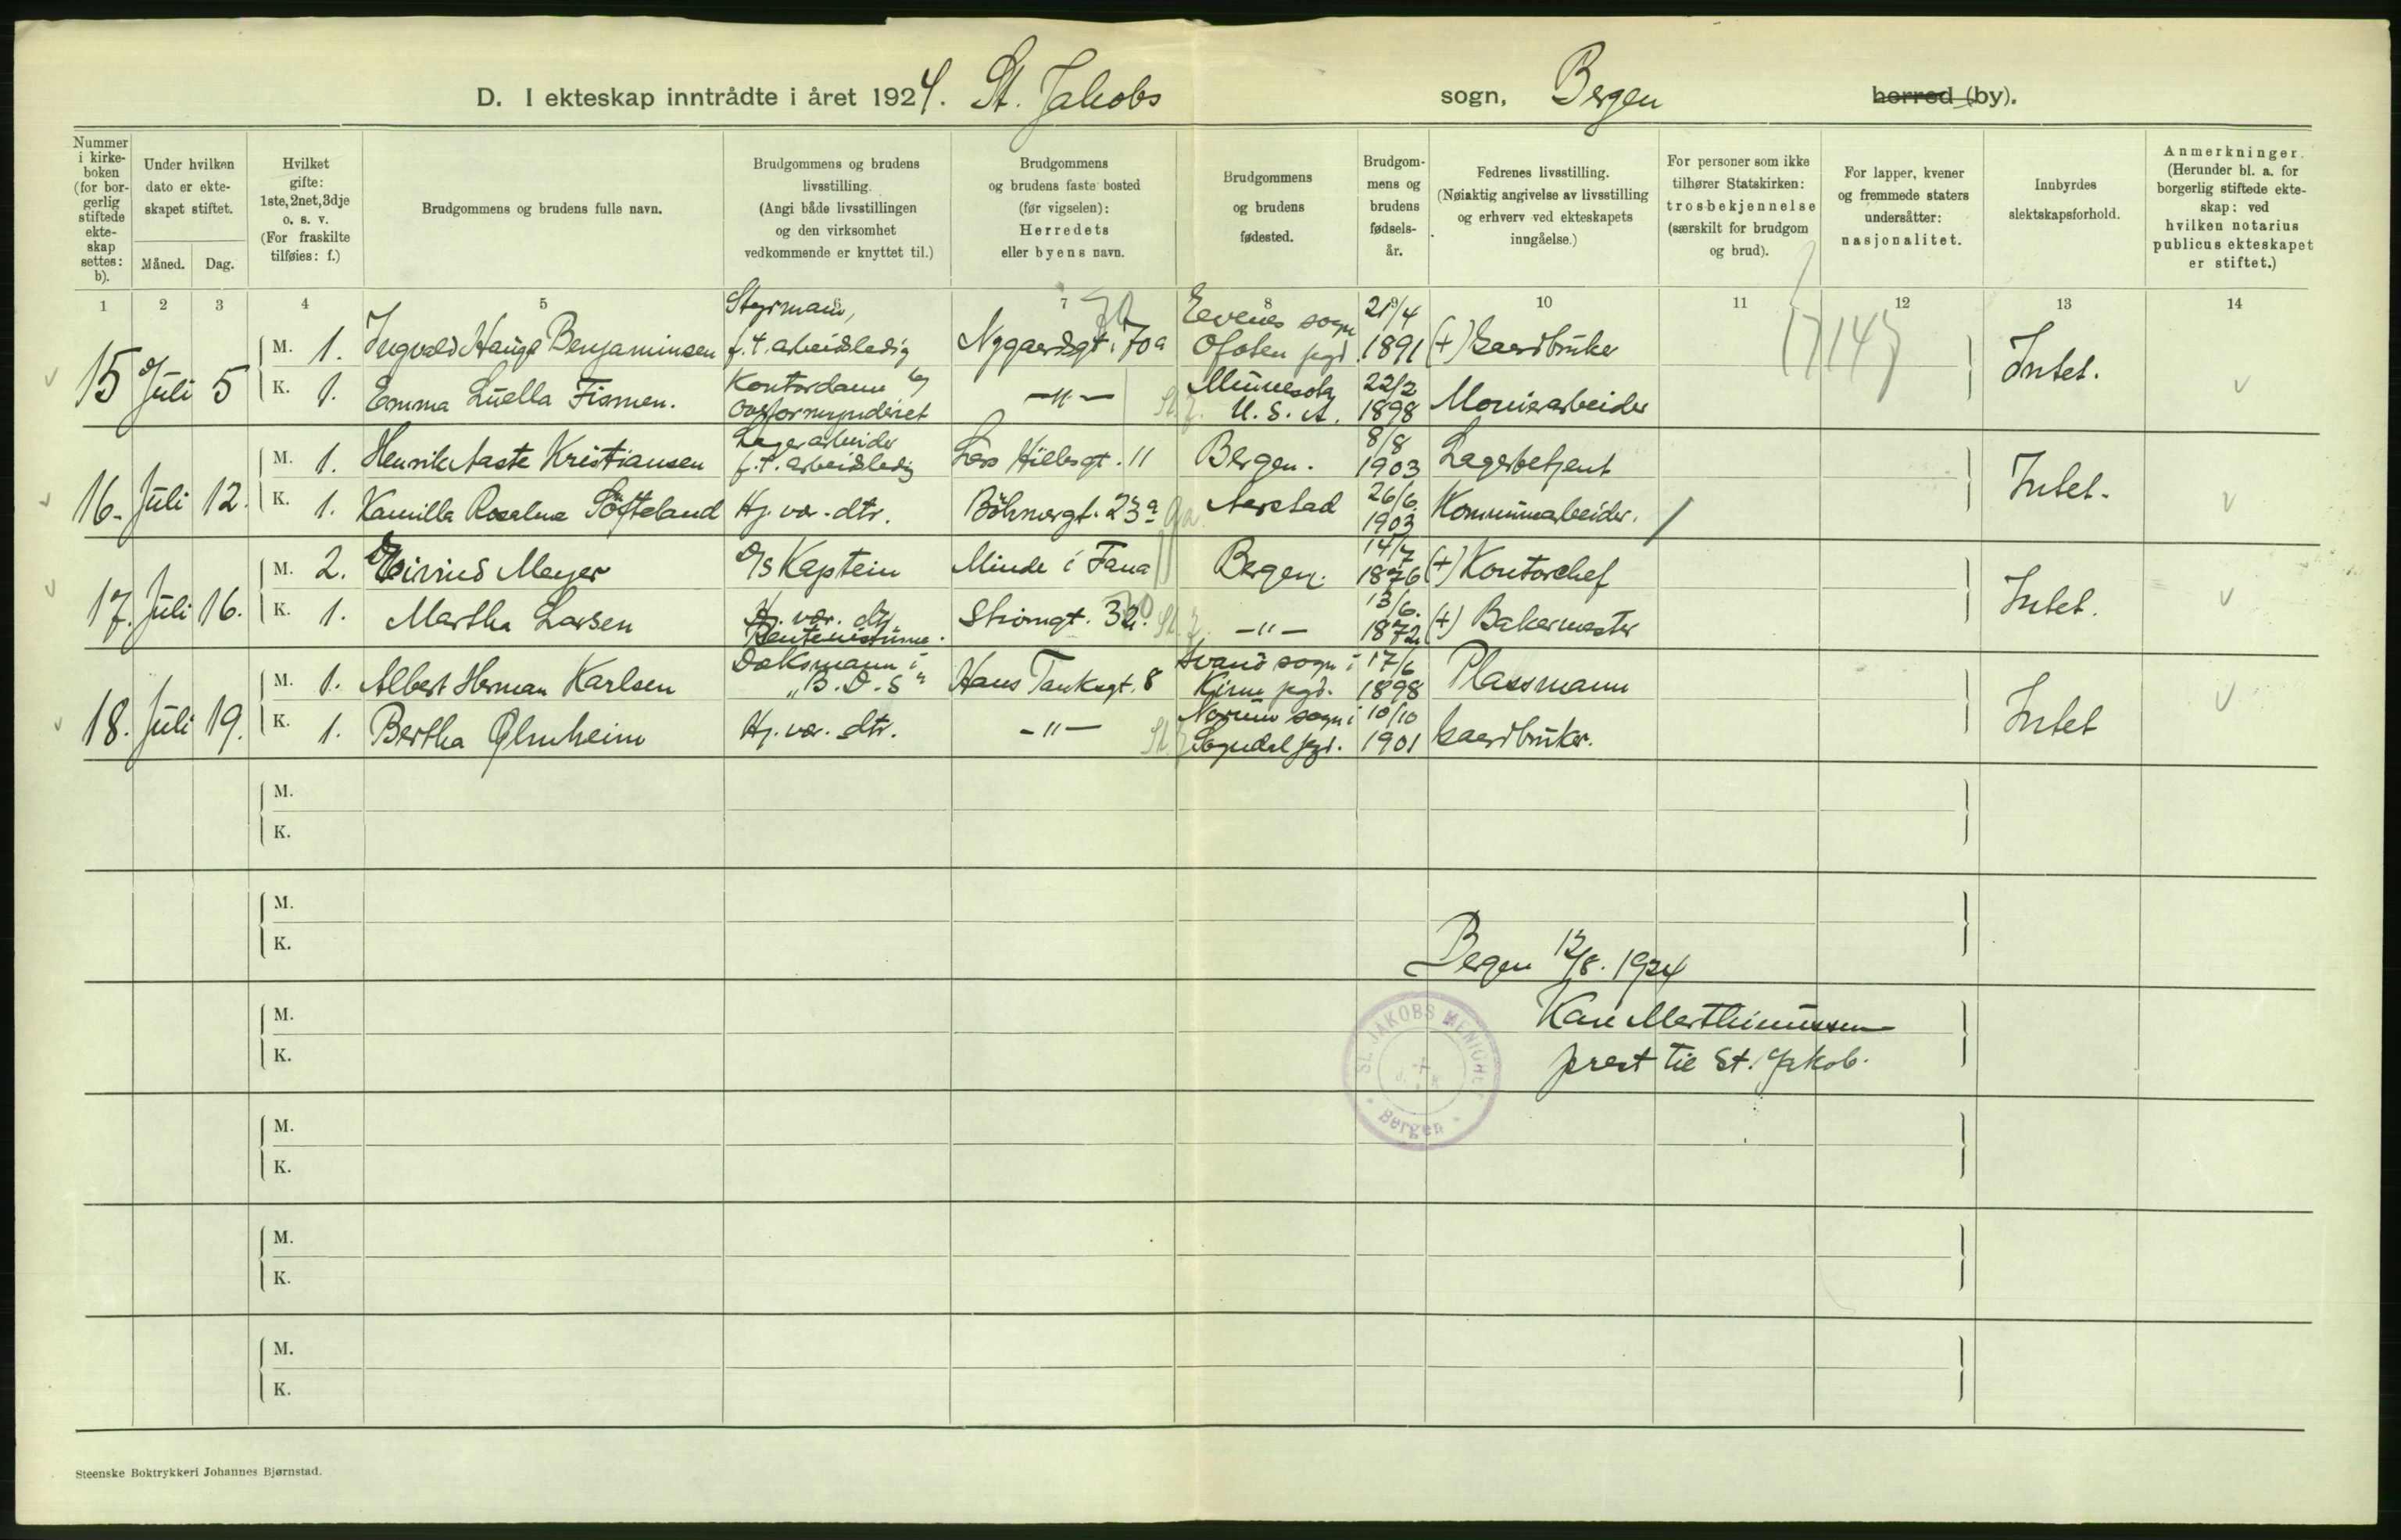 D. I ekteskap inntrådte i året 1924. St. Jakobs sogn, Bergen herred (by).
Nummer i kirkeboken (for borgerlig stiftede ekteskap settes: b).
Under hvilken dato er ekteskapet stiftet.
Måned. Dag.
Hvilket gifte: 1ste, 2net, 3dje o. s. v. (For fraskilte tilføies: f.)
Brudgommens og brudens fulle navn.
Brudgommens og brudens livsstilling. (Angi både livsstillingen og den virksomhet vedkommende er knyttet til.)
Brudgommens og brudens faste bosted (før vigselen): Herredets eller byens navn.
Brudgommens og brudens fødested.
Brudgommens og brudens fødselsår.
Fedrenes livsstilling. (Nøiaktig angivelse av livsstilling og erhverv ved ekteskapets inngåelse.)
For personer som ikke tilhører Statskirken: trosbekjennelse (særskilt for brudgom og brud).
For lapper, kvener og fremmede staters undersåtter: nasjonalitet.
Innbyrdes slektskapsforhold.
Anmerkninger. (Herunder bl. a. for borgerlig stiftede ekteskap: ved hvilken notarius publicus ekteskapet er stiftet.)
1 2 3 4 5 6 7 8 9 10 11 12 13 14
15 Juli 5 M. 1. Ingvald Hauge Benjaminsen Styrmann, f.t. arbeidsledig Nygaardsgt. 70a Evenes sogn Ofoten pgd. 21/4 1891 (+) Gaardbruker Intet.
K. 1. Emma Luella Fismen. Kontordame v/ Overformynderiet -"- Minnesota U. S. A. 22/2 1898 Murerarbeider
16. Juli 12. M. 1. Henrik Aaste Kristiansen Lagerarbeider f.t. arbeidsledig Lars Hillesgt. 11 Bergen. 8/8 1903 Lagerbetjent Intet.
K. 1. Kamilla Rosalma Söfteland Hj. vær. dtr. Böhmergt. 23a Aarstad 26/6. 1903 Kommunearbeider.
17. Juli 16. M. 2. Eivind Meyer D/s Kaptein Minde i Fana Bergen. 14/7 1876 (+) Kontorchef Intet.
K. 1. Martha Larsen Hj. vær. dtr. Rentenistinne. Strømgt. 32. -"- 13/6. 1872 (+) Bakermester
18. Juli 19. M. 1. Albert Herman Karlsen Dæksmann i "B. D. S" Hans Tanksgt. 8 Svanö sogn i Kinn pgd. 17/6 1898 Plassmann Intet
K. 1. Bertha Ølnheim Hj. vær. dtr. -"- Norum sogn i Sogndal pgd. 10/10 1901 Gaardbruker.
M.
K.
M.
K.
Bergen 12/8. 1924
M.
Kare Marthinussen
K.
prest til St. Jakob.
ST. JAKOBS MENIGHET
Bergen
M.
K.
M.
K.
M.
K.
Steenske Boktrykkeri Johannes Bjørnstad.